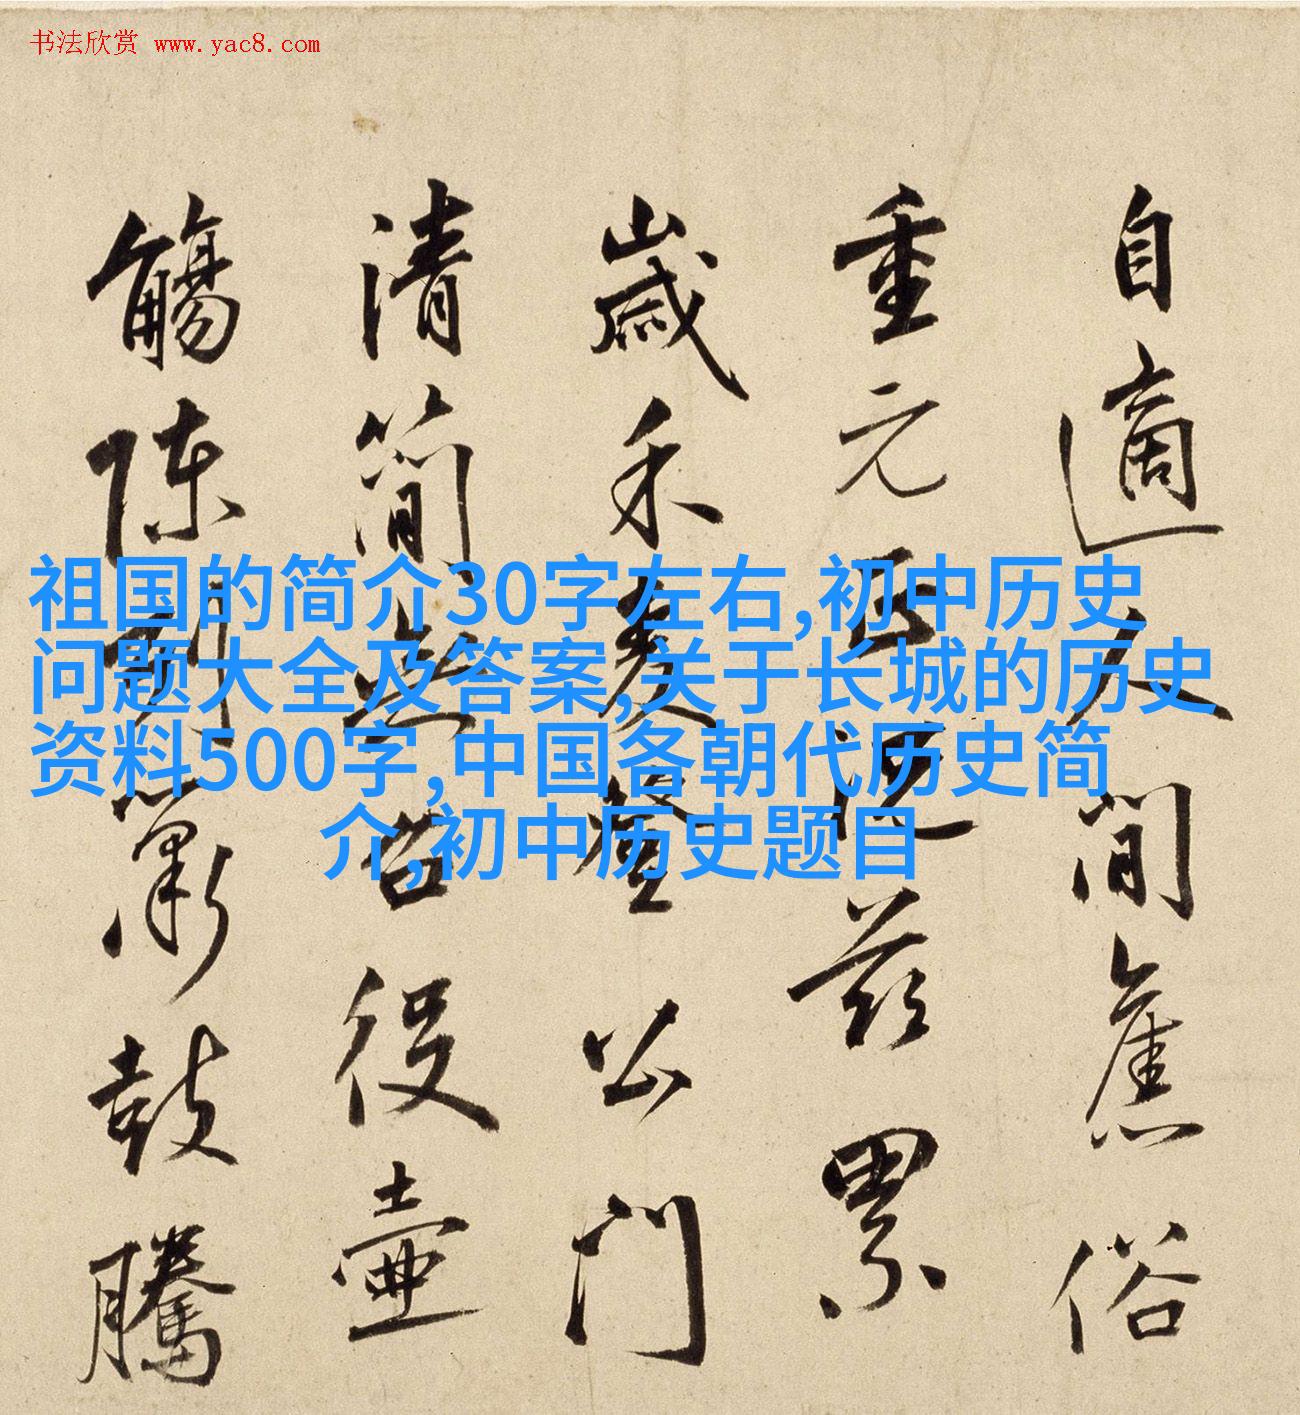 书法欣赏 www.yac8.com
祖国的简介30字左右,初中历史
问题大全及答案,关于长城的历史
资料500字,中国各朝代历史简
介,初中历史题目
自適人間舊俗
重元正況茲累
歲禾麥登公門
清簡無苦役壷
觴陳列簫鼓騰